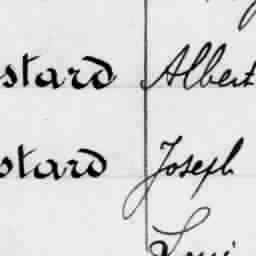 stard Albert
stard Joseph
Loui